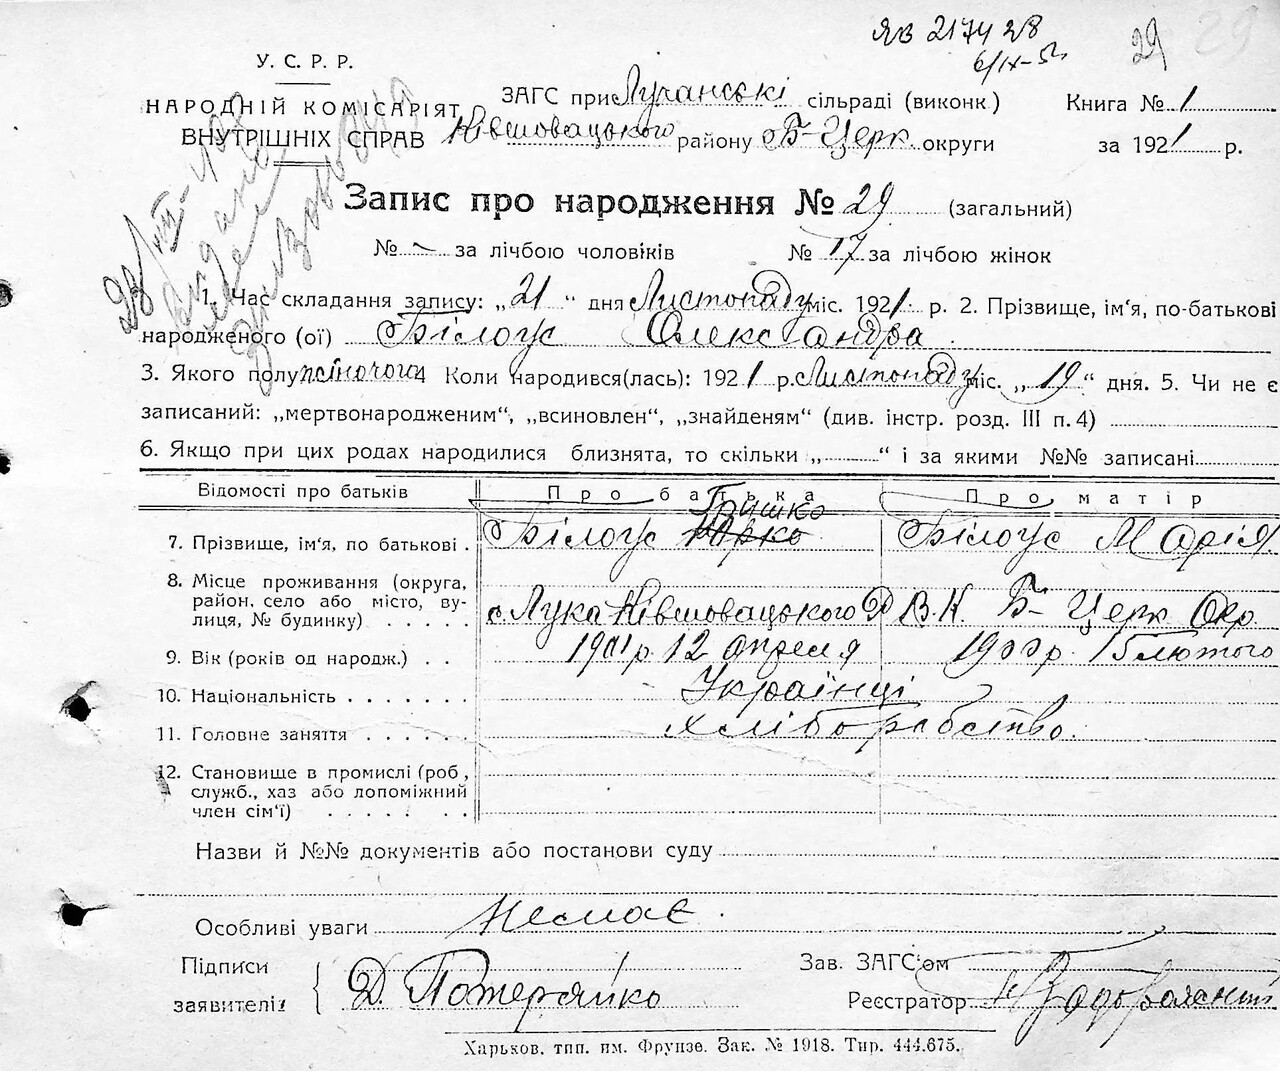 ЯВ 2174 28
6/IX-52
29
29
У. С. Р. Р.
НАРОДНІЙ КОМІСАРІЯТ
ВНУТРІШНІХ СПРАВ
ЗАГС при Лучанські сільраді (виконк.)
Книга № 1
району Б-Церк. округи
за 1921 р.
Запис про народження № 29 (загальний)
№ - за лічбою чоловіків
№ 17 за лічбою жінок
1. Час складання запису: „21“ дня Листопаду міс. 1921 р. 2. Прізвище, ім‘я, по-батькові
народженого (ої) Білоус Олександра
3. Якого полу жіночого 4 Коли народився(лась): 1921 р. Листопаду міс. „19“ дня. 5. Чи не є
записаний: „мертвонародженим“, „всиновлен“, „знайденям“ (див. інстр. розд. III п. 4)
6. Якщо при цих родах народилися близнята, то скільки „ “ і за якими №№ записані
Відомості про батьків
Про батька
Про матір
Гришко
7. Прізвище, ім‘я, по батькові . Білоус Юрко Білоус Марія
8. Місце проживання (округа,
район, село або місто, ву-
лиця, № будинку) . . . . . с. Лука Р.В.К. Б-Церк Окр.
9. Вік (років од народж.) . . 1901 р. 12 апреля 1900 р. 15 лютого
10. Національність . . . . . . . Українці
11. Головне заняття . . . . . . хліборобство.
12. Становище в промислі (роб,
служб., хаз або допоміжний
член сім‘ї) . . . . . . .
Назви й №№ документів або постанови суду
Особливі уваги Немає.
Підписи
заявителів
Д. Потеряйко
Зав. ЗАГС‘ом
Реєстратор
Харьков, тип. им. Фрунзе. Зак. № 1918. Тир. 444.675.